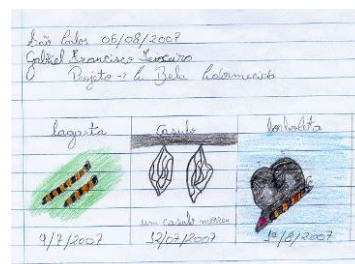 São Carlos 06/08/2007
Gabriel Francisco
Projeto → A Bela Adormecida
lagarta casulo borboleta
um casulo morreu
9/7/2007 12/07/2007 1º/8/2007